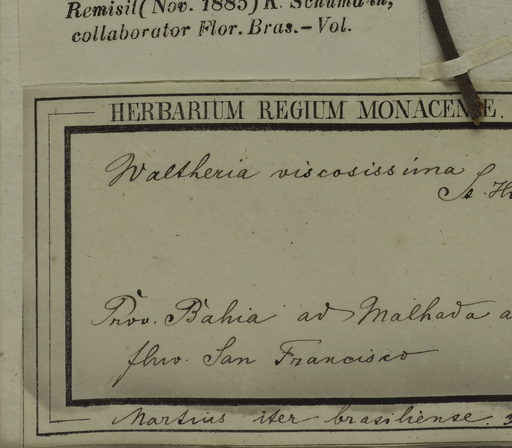 Remisit (Nov. 1885) K. Schumann,
collaborator Flor. Bras.—Vol.
HERBARIUM REGIUM MONACENSE.
Waltheria viscosissima
St. Hi
Prov. Bahia ad Malhada a
fluv. San Francisco
Martius iter brasiliense.